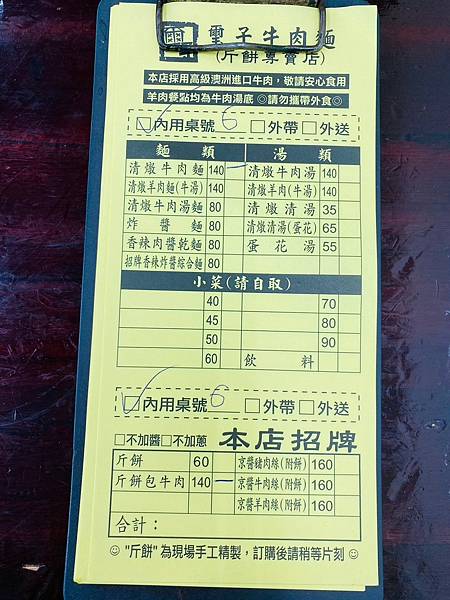 璽子牛肉麵
(斤餅專賣店)
本店採用高級澳洲進口牛肉，敬請安心食用
羊肉餐點均為牛肉湯底 ◎請勿攜帶外食◎
☑內用桌號6 □外帶 □外送
麵類 湯類
清燉牛肉麵 140 一 清燉牛肉湯 140
清燉羊肉麵(牛湯) 140 清燉羊肉(牛湯) 140
清燉牛肉湯麵 80 清燉清湯 35
炸醬麵 80 清燉清湯(蛋花) 65
香辣肉醬乾麵 80 蛋花湯 55
招牌香辣炸醬綜合麵 80
小菜(請自取)
40 70
45 80
50 90
60 飲料
☑內用桌號6 □外帶 □外送
□不加醬 □不加蔥 本店招牌
斤餅 60 京醬豬肉絲(附餅) 160
斤餅包牛肉 140 一 京醬牛肉絲(附餅) 160
京醬羊肉絲(附餅) 160
合計：
☺ "斤餅" 為現場手工精製，訂購後請稍等片刻 ☺